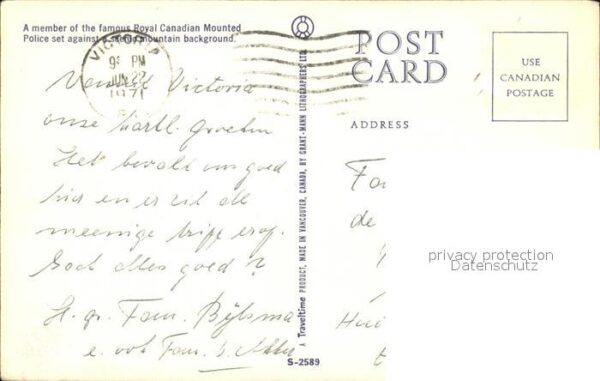 A member of the famous Royal Canadian Mounted
Police set against a scenic mountain background.
VICTORIA
PM
JUN 22
1971
POST
CARD
USE
CANADIAN
POSTAGE
ADDRESS
Vanuit Victoria
onze hartl. groeten
Het bevalt ons goed
hier en er zit al
menige tripje erop.
Gaat alles goed?
H. gr. Fam. Bijlsma
e. ook Fam. v.
Fa
de
A Traveltime PRODUCT, MADE IN VANCOUVER, CANADA, BY GRANT-MANN LITHOGRAPHERS LTD.
S-2589
privacy protection
Datenschutz